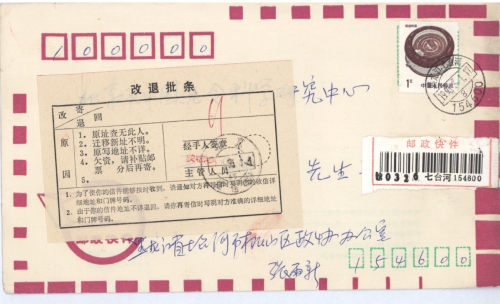 100000
1元
中国人民邮政
154600
改退批条
改寄
退回
原因
1. 原址查无此人。
2. 迁移新址不明。
3. 原写地址不详。
4. 欠资,请补贴邮
票分后再寄。
5.
经手人签章
主管人员
1. 为了使你的信件能够按时收到,请通知对方再寄信时写明你的收信详
细地址和门牌号码。
2. 由于你的信件地址不详退回,请你再寄信时写明对方准确的详细地址
和门牌号码。
究中心
先生
邮政快件
0320 七台河154600
邮政快件
黑龙江省七台河市桃山区政协办公室
154600